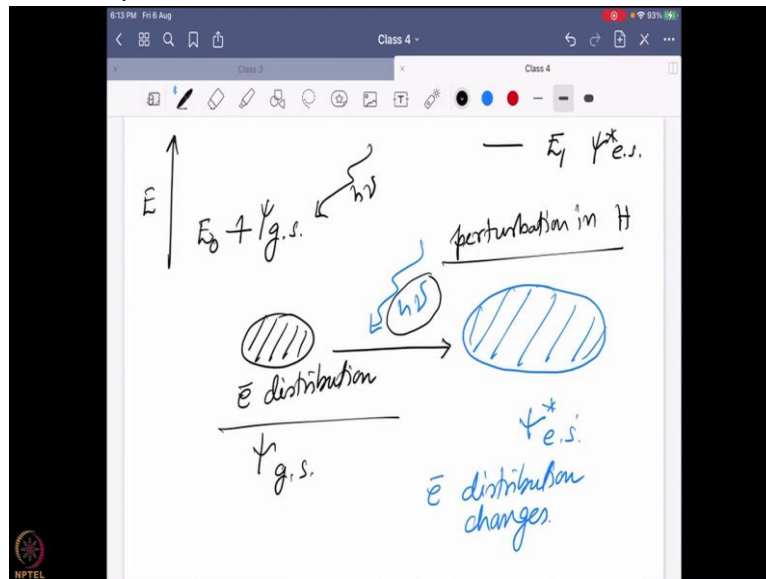 6:13 PM Fri 6 Aug
93%
Class 4
Class 3
Class 4
T
E
E₀ ψg.s.
hν
E₁ ψ*e.s.
perturbation in H
hν
ē distribution
ψg.s.
ψ*e.s.
ē distribution
changes.
NPTEL